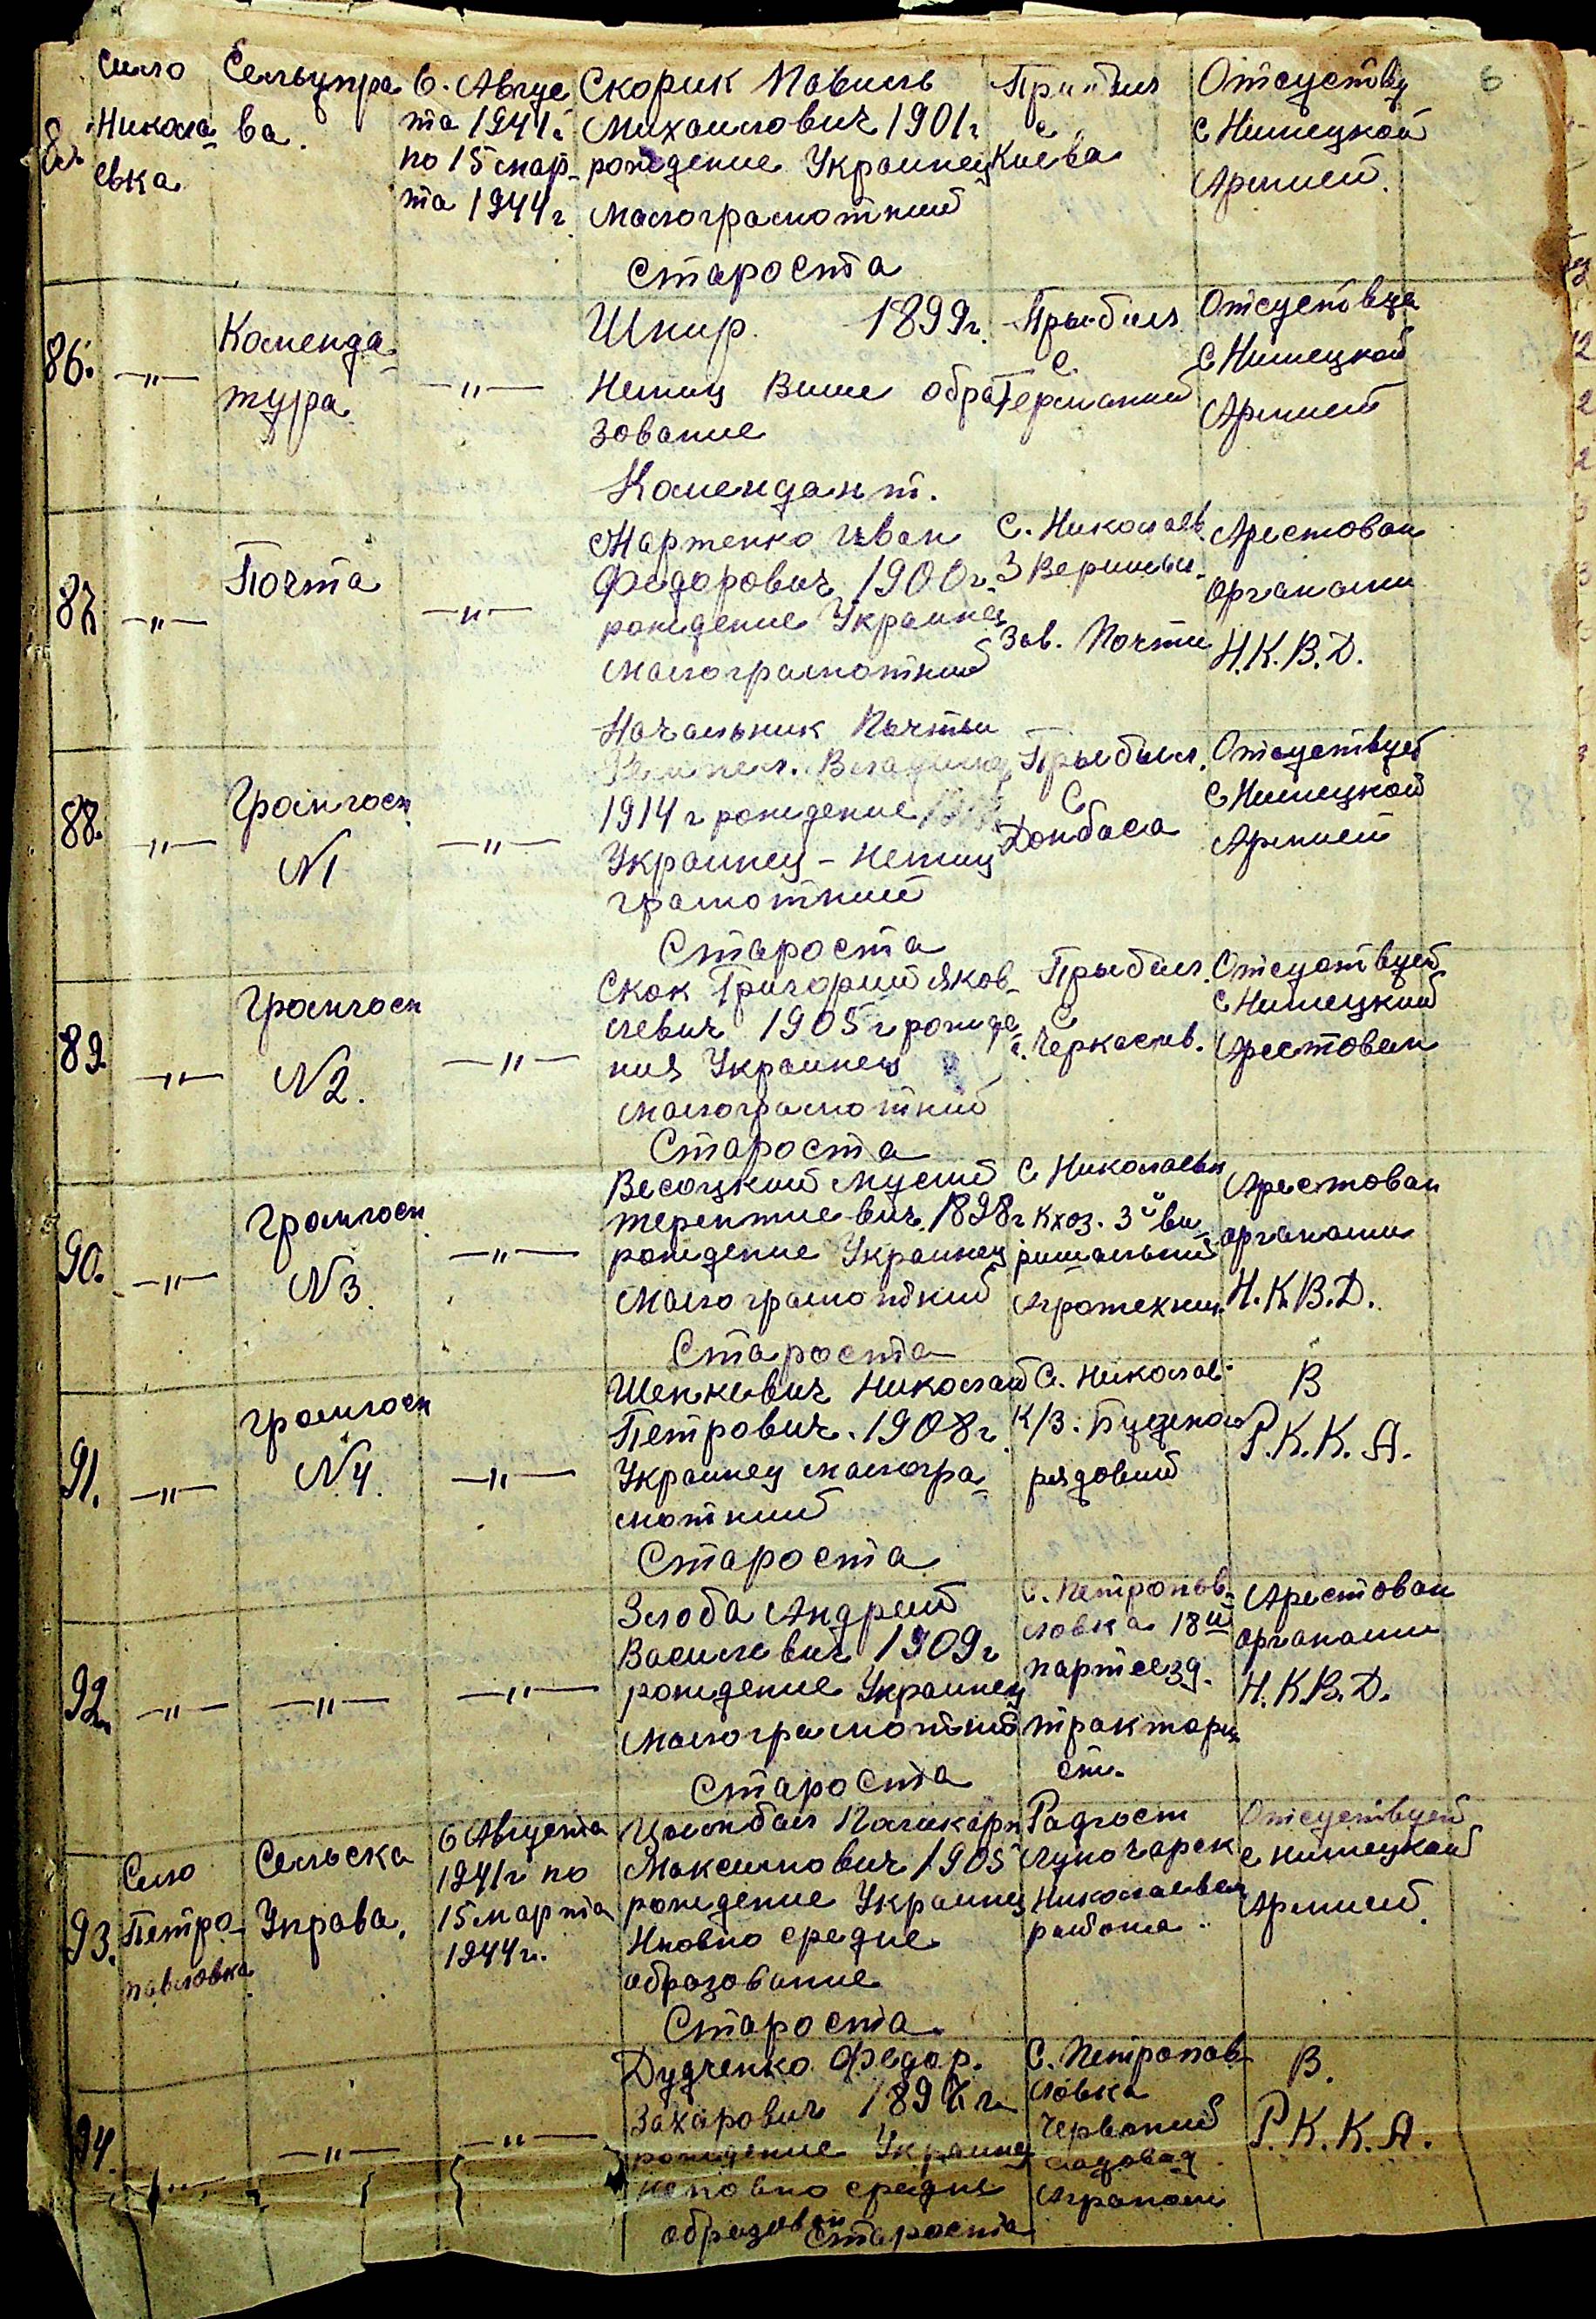 6
85.
село
Никола-
евка
Сельупра
ва.
6. Авгус
та 1941 г.
по 15 мар-
та 1944 г.
Скорик Повиль
Михаилович 1901 г.
рождение Украинец
Малограмотний
Староста
Прибил
с
Киева
Отсуству
с Нимецкой
Армией.
86.
—"—
Коменда-
тура
—"—
Шпир. 1899 г.
Немиц Више обра
зование
Комендант.
Прыбил
с.
Германий
Отсуствуе
с Нимецкой
Армией
87
—"—
Почта
—"—
Марженко Иван
Федорович 1900 г.
рождение Украинец
малограмотний
Начальник Почты
С. Николаев.
З Веришал.
Зав. Почти
Арестован
органами
Н.К.В.Д.
88.
—"—
Громгосп
№1
—"—
Владимир
1914 г рождение
Украинец - Немиц
грамотний
Староста
Прыбыл.
С
Донбаса
Отсуствует
с Нимецкой
Армией
89.
—"—
Громгосп
№2.
—"—
Скок Григорий Яков-
левич 1905 г рожде
ния Украинец
малограмотний
Староста
Прыбил.
С
г. Черкасив.
Отсуствует
с Нимецкий
Арестован
90.
—"—
Громгосп.
№3.
—"—
Весоцкий Мусий
терентиевич. 1898 г
рождение Украинец
Малограмотний
Староста
С Николаевк
Кхоз. 3й ви
ришальний
Агротехник.
Арестован
органами
Н.К.В.Д.
91.
—"—
громгосп
№4.
—"—
Шенкевич Николай
Петрович. 1908 г.
Украинец малогра-
мотний
Староста
С. Николаев.
К/З. Буденого
рядовий
В
Р.К.К.А.
92.
—"—
—"—
—"—
Злоба Андрей
Василевич 1909 г
рождение Украинец
Малограмотний
Староста
С. Петропав-
ловка 18й
партсезд.
трактори
ст.
Арестован
органами
Н.К.В.Д.
93.
Село
Петро-
павловка
Сельска
Управа.
6 Августа
1941 г по
15 марта
1944 г.
Цимбал Поликарп
Максимович 1905
рождение Украинец
Нповно средне
образование
Староста
Радгосп
Луночарск
Николаевск
района.
Отсуствует
с нимецкой
Армией.
94.
—"—
—"—
—"—
Дудченко Федор.
Захарович 1897 г
рождение Украинец
неповно средне
образован
Староста
С. Петропав
ловка
Червоний
садовод
Агроном
В.
Р.К.К.А.